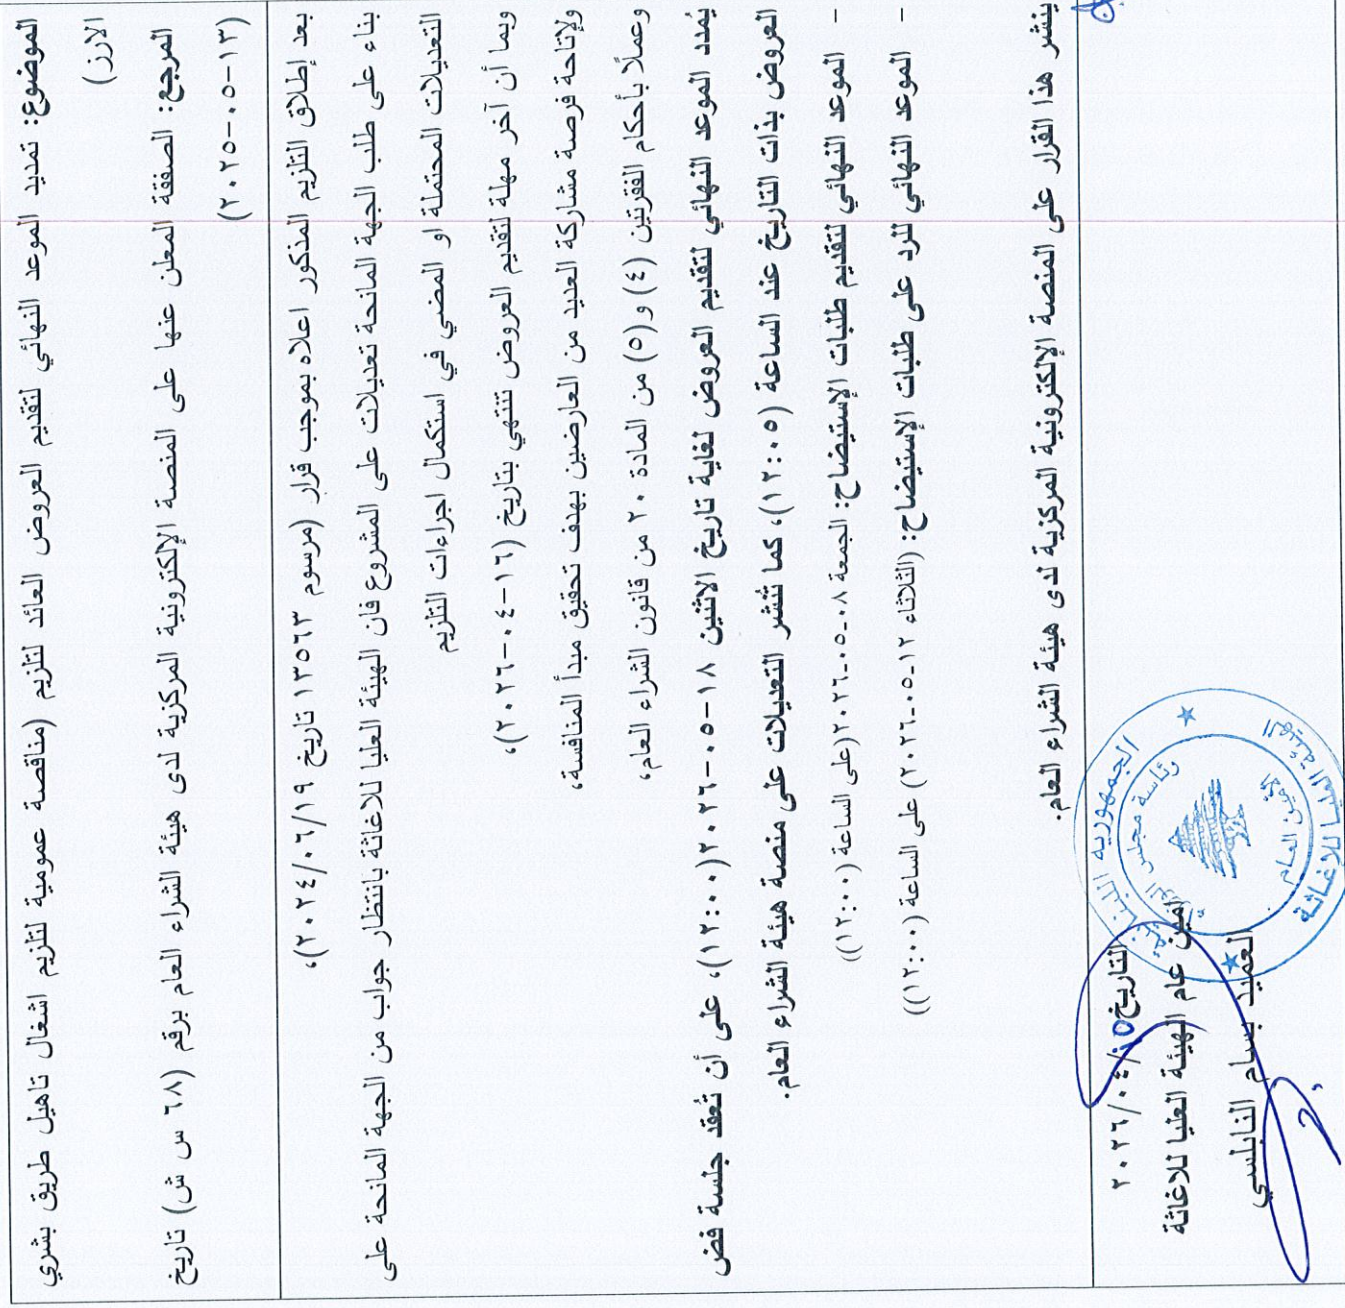 الموضوع: تمديد الموعد النهائي لتقديم العروض العائد لتلزيم (مناقصة عمومية لتلزيم اشغال تاهيل طريق بشري
الارز)
المرجع: الصفقة المعلن عنها على المنصة الإلكترونية المركزية لدى هيئة الشراء العام برقم (٦٨ س ش) تاريخ
(١٣-٠٥-٢٠٢٥)
بعد إطلاق التلزيم المذكور اعلاه بموجب قرار (مرسوم ١٣٥٦٣ تاريخ ٢٠٢٤/٠٦/١٩)،
بناء على طلب الجهة المانحة تعديلات على المشروع فان الهيئة العليا للاغاثة بانتظار جواب من الجهة المانحة على
التعديلات المحتملة او المضي في استكمال اجراءات التلزيم
وبما أن آخر مهلة لتقديم العروض تنتهي بتاريخ (١٦-٠٤-٢٠٢٦)،
ولإتاحة فرصة مشاركة العديد من العارضين بهدف تحقيق مبدأ المنافسة،
وعملًا بأحكام الفقرتين (٤) و(٥) من المادة ٢٠ من قانون الشراء العام،
يُمدد الموعد النهائي لتقديم العروض لغاية تاريخ الاثنين ١٨-٠٥-٢٠٢٦ (١٢:٠٠)، على أن تُعقد جلسة فض
العروض بذات التاريخ عند الساعة (١٢:٠٥)، كما تُنشر التعديلات على منصة هيئة الشراء العام.
- الموعد النهائي لتقديم طلبات الإستيضاح: الجمعة ٠٨-٠٥-٢٠٢٦ (على الساعة (١٢:٠٠))
- الموعد النهائي للرد على طلبات الإستيضاح: (الثلاثاء ١٢-٠٥-٢٠٢٦) على الساعة (١٢:٠٠))
ينشر هذا القرار على المنصة الإلكترونية المركزية لدى هيئة الشراء العام.
التاريخ ٢٠٢٦/٠٤/١٥
أمين عام الهيئة العليا للاغاثة
العميد بسام النابلسي
الجمهورية اللبنانية
رئاسة مجلس الوزراء
الأمين العام
الهيئة العليا للاغاثة